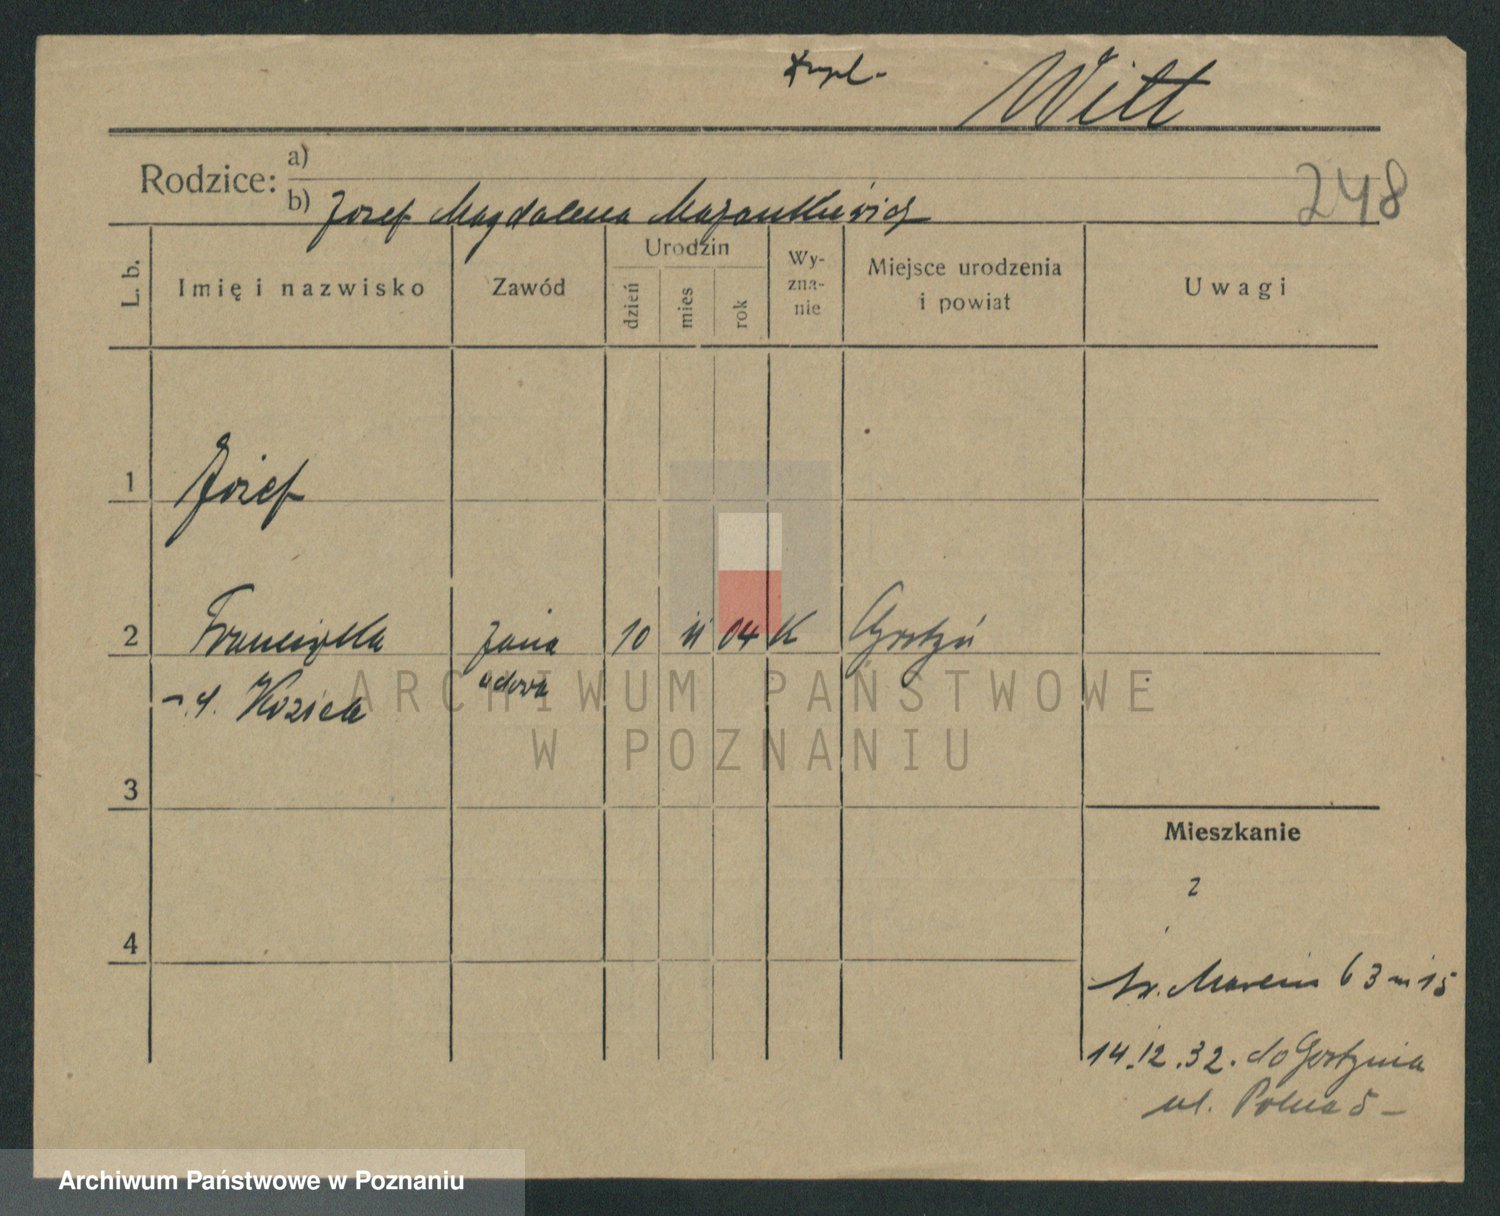 Witt
Rodzice: a)
248
b) Józef Magdalena
L. b.
Imię i nazwisko
Zawód
Urodzin
dzień
mies
rok
Wy-
zna-
nie
Miejsce urodzenia
i powiat
Uwagi
1 Józef
2 Franciszka 10 11 04 K Gostyń
wdowa
ARCHIWUM PAŃSTWOWE
W POZNANIU
3
Mieszkanie
4
św. Marcin 63 m 15
14.12.32. do Gostynia
ul. Polna 5 -
Archiwum Państwowe w Poznaniu